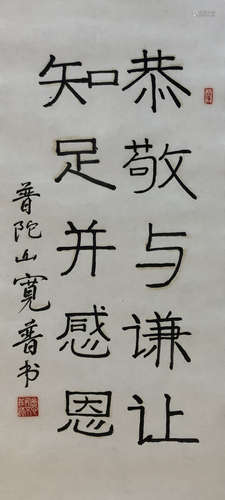 恭敬与谦让
知足并感恩
普陀山寬普书